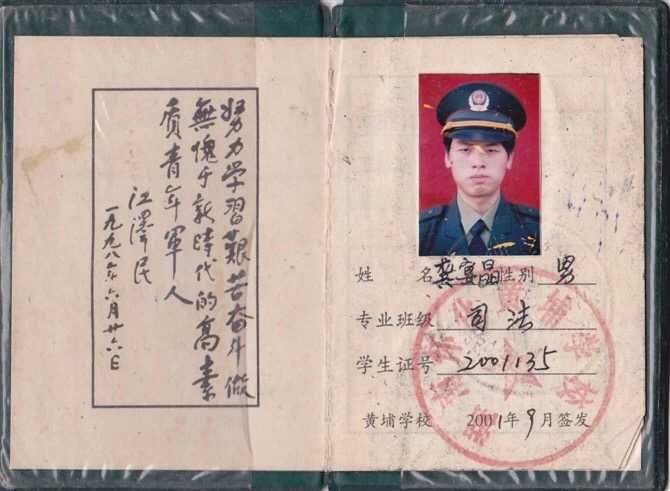 努力学習艱苦奋斗做
無愧于新時代的高素
质青年軍人
江澤民
一九九八年六月廿六日
姓 名 龚富晶 性别 男
专业班级 司法
学生证号 2001135
黄埔学校 2001年9月签发